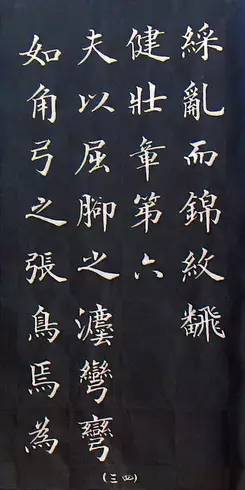 綵亂而錦紋飜
健壯章第六
夫以屈腳之灋彎彎
如角弓之張鳥焉為
(三四)